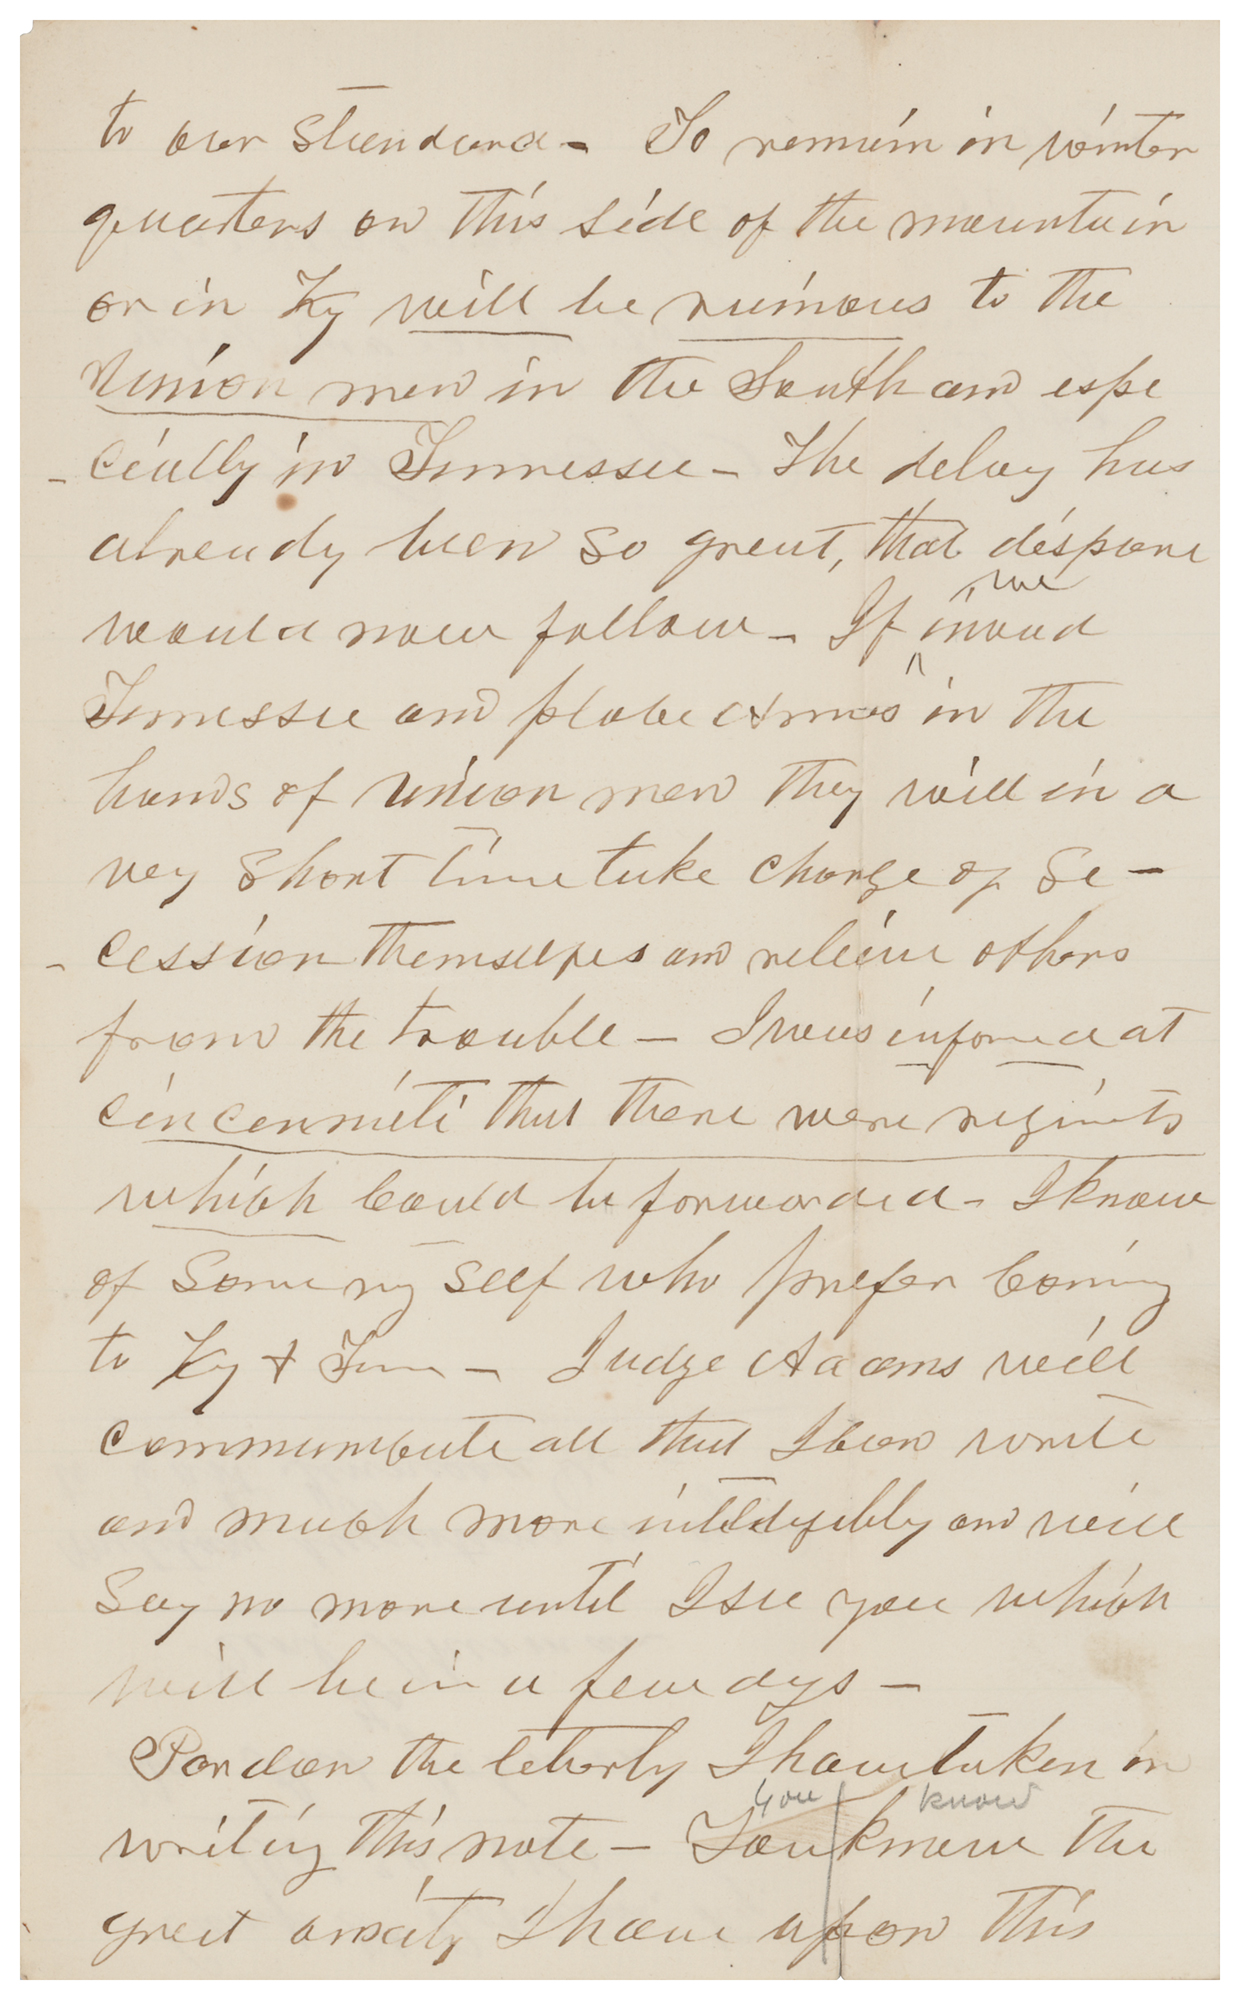 to our Standard - To remain in winter
quarters on this side of the mountain
or in Ky will be ruinous to the
Union men in the South and espe
- cially in Tennessee - The delay has
already been so great, that dispare
would now follow - If we invad
Tennessee and place Arms in the
hands of Union men they will in a
very short time take charge of Se -
- cession themselves and relieve others
from the trouble - I was informed at
Cincennati that there were regiments
which could be forwarded - I know
of some my self who prefer coming
to Ky & Tenn - Judge Adams will
communicate all that I can write
and much more intelligibly and will
Say no more until I see you which
will be in a few days -
Pardon the liberty I have taken in
writing this note - You know the
you know
great anxiety I have upon this